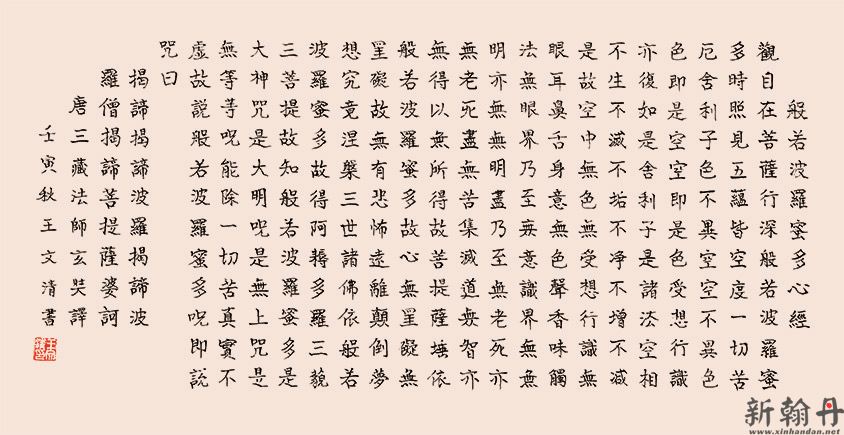 般若波羅蜜多心經
觀自在菩薩行深般若波羅蜜
多時照見五蘊皆空度一切苦
厄舍利子色不異空空不異色
色即是空空即是色受想行識
亦復如是舍利子是諸法空相
不生不滅不垢不净不增不减
是故空中無色無受想行識無
眼耳鼻舌身意無色聲香味觸
法無眼界乃至無意識界無無
明亦無無明盡乃至無老死亦
無老死盡無苦集滅道無智亦
無得以無所得故菩提薩埵依
般若波羅蜜多故心無罣礙無
罣礙故無有恐怖遠離顛倒夢
想究竟涅槃三世諸佛依般若
波羅蜜多故得阿耨多羅三藐
三菩提故知般若波羅蜜多是
大神咒是大明咒是無上咒是
無等等呪能除一切苦真實不
虛故説般若波羅蜜多呪即説
咒曰
揭諦揭諦波羅揭諦波
羅僧揭諦菩提薩婆訶
唐三藏法師玄奘譯
壬寅秋王文清書
新翰丹
www.xinhandan.net